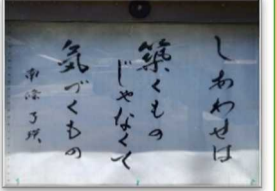 しあわせは
築くもの
じゃなくて
気づくもの